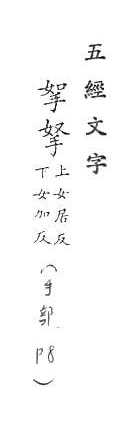 五經文字
挐拏
上女居反
下女加反
(手部 P8)